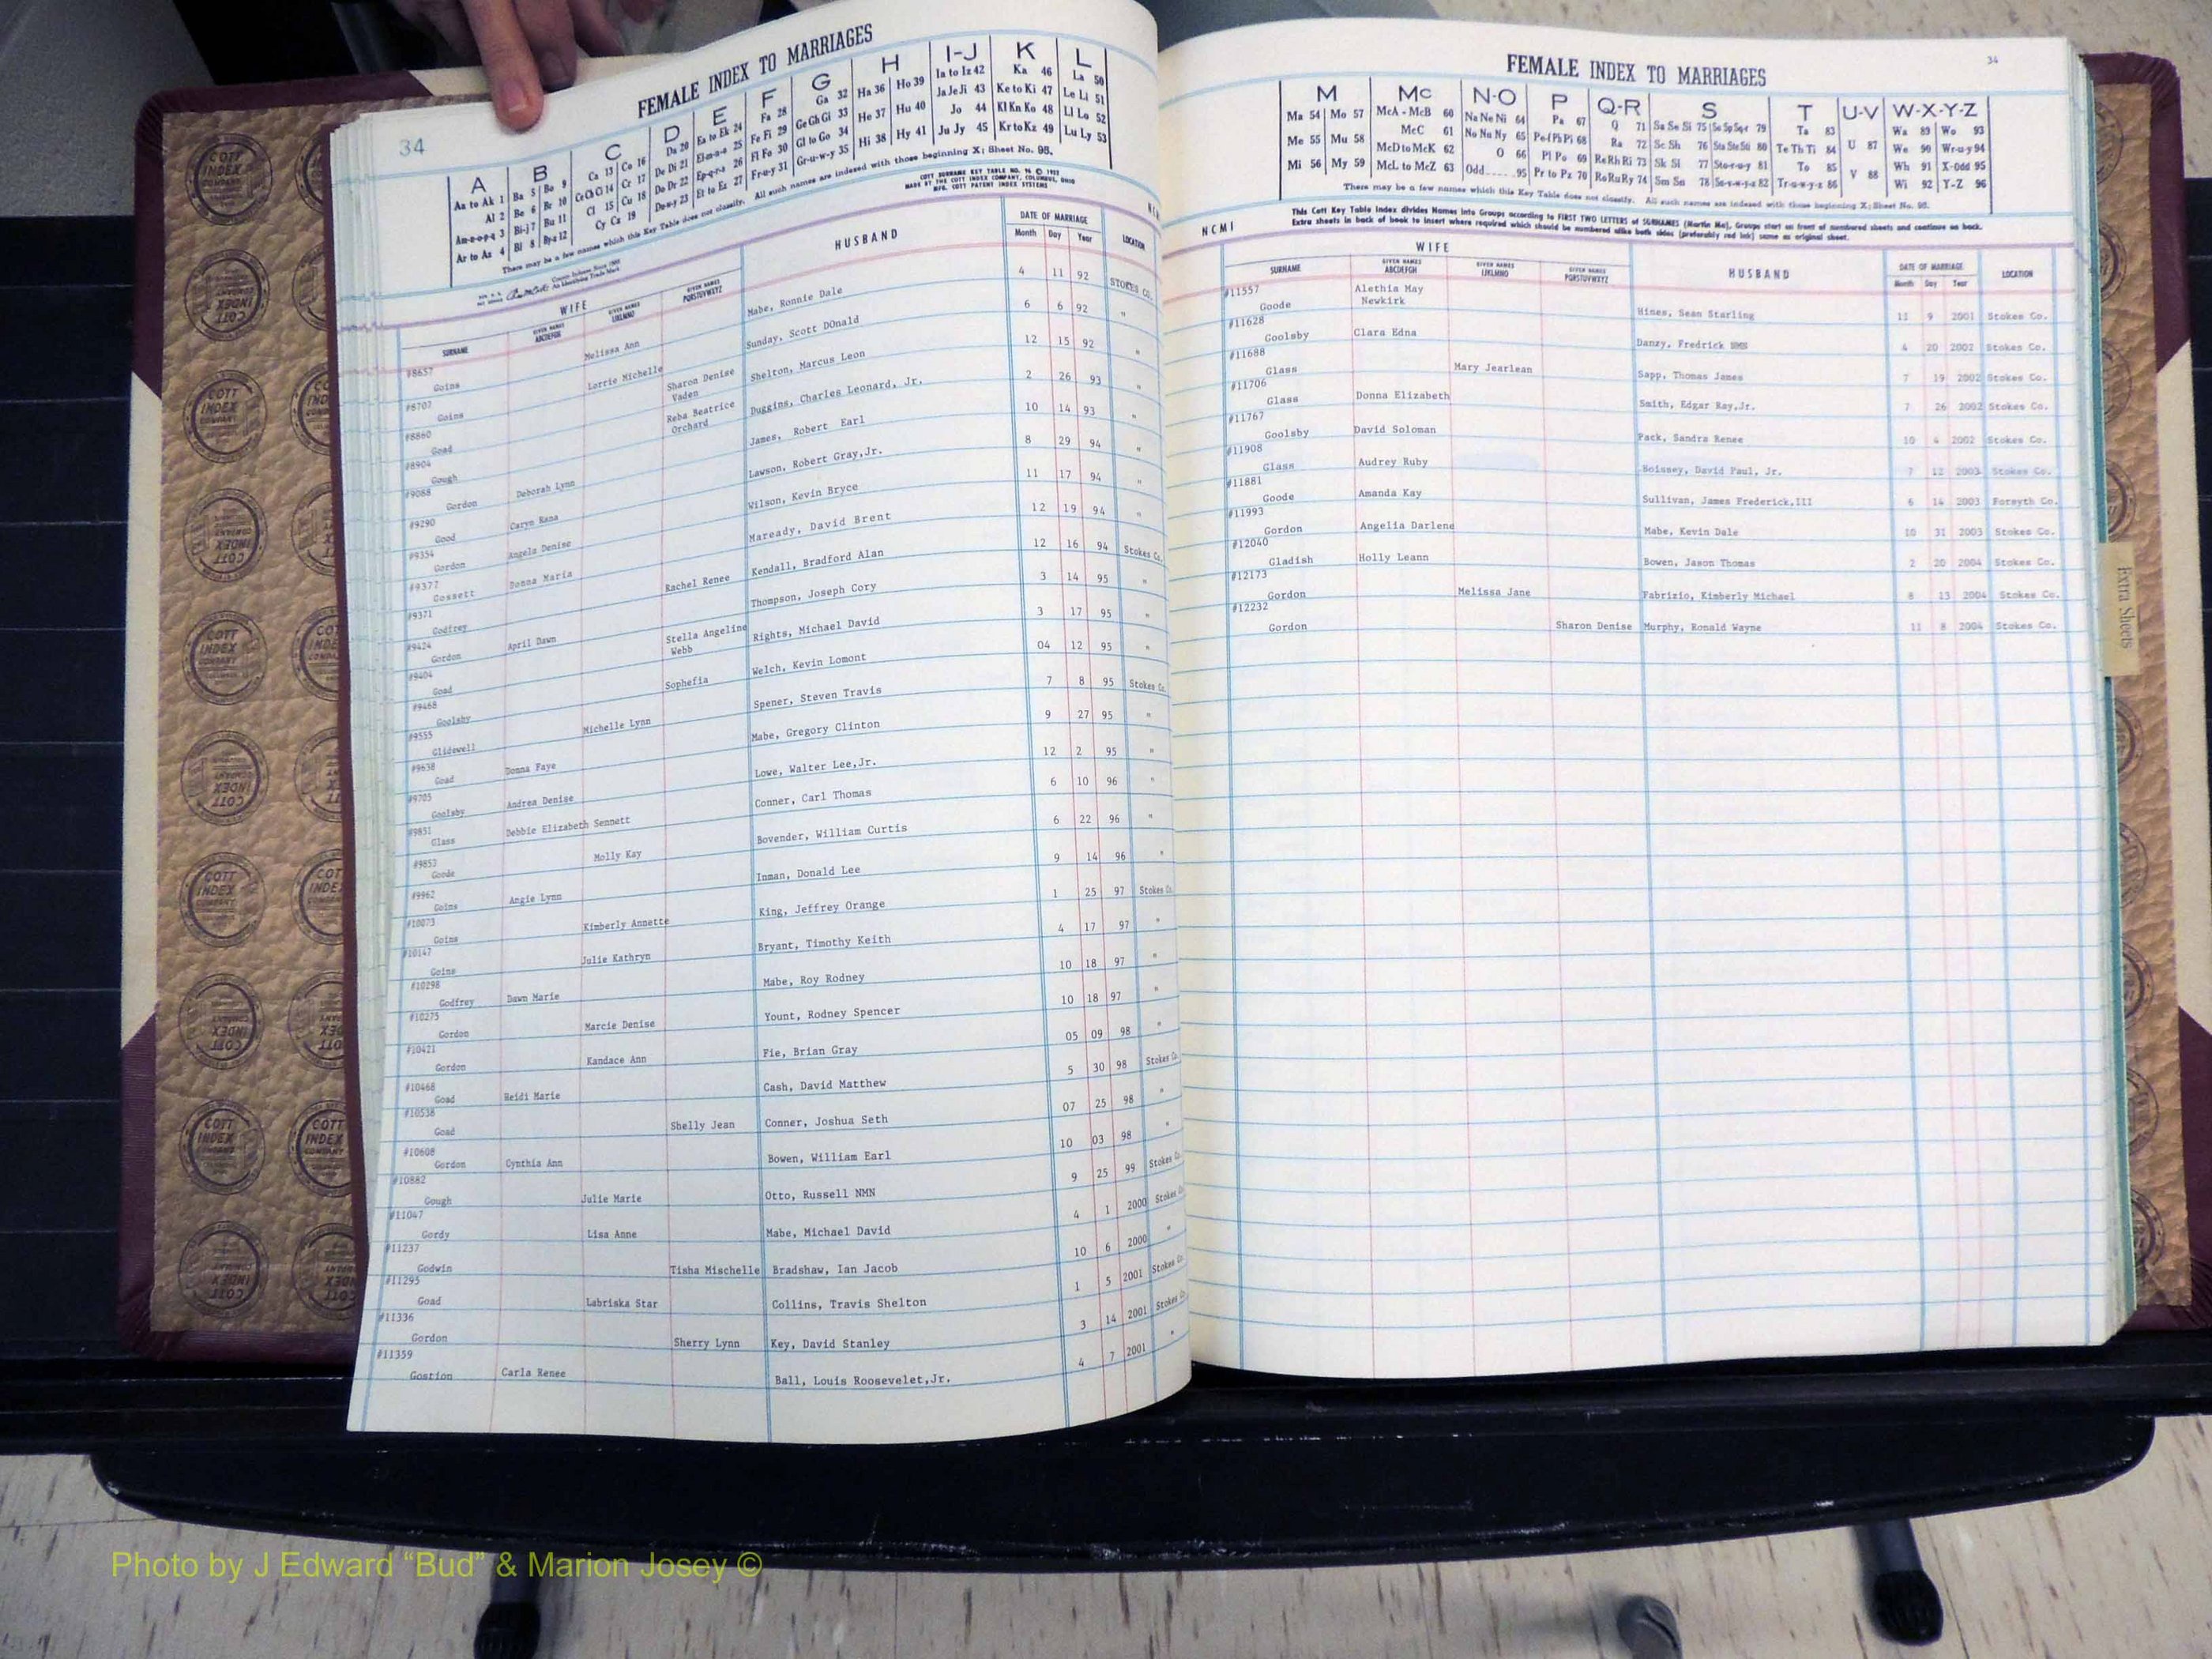 34
FEMALE INDEX TO MARRIAGES
A
Aa to Ak 1
Al 2
Am-n-o-p-q 3
Ar to Az 4
B
Ba 5 Bo 9
Be 6 Br 10
Bi-j 7 Bu 11
Bl 8 By-z 12
C
Ca 13 Co 16
Ce Ch Ci 14 Cr 17
Cl 15 Cu 18
Cy Cz 19
D
Da 20
De Di 21
Do Dr 22
Du-w-y 23
E
Ea to Ek 24
El-m-n-o 25
Ep-q-r-s 26
Et to Ez 27
F
Fa 28
Fe Fi 29
Fl Fo 30
Fr-u-y 31
G
Ga 32
Ge Gh Gi 33
Gl to Go 34
Gr-u-w-y 35
H
Ha 36 Ho 39
He 37 Hu 40
Hi 38 Hy 41
I-J
Ia to Iz 42
Ja Je Ji 43
Jo 44
Ju Jy 45
K
Ka 46
Ke to Ki 47
Kl Kn Ko 48
Kr to Kz 49
L
La 50
Le Li 51
Ll Lo 52
Lu Ly 53
There may be a few names which this Key Table does not classify. All such names are indexed with those beginning X; Sheet No. 95.
COTT SURNAME KEY TABLE NO. 96 © 1952
MADE BY THE COTT INDEX COMPANY, COLUMBUS, OHIO
MFG. COTT PATENT INDEX SYSTEMS
WIFE HUSBAND DATE OF MARRIAGE LOCATION
SURNAME GIVEN NAMES ABCDEFGH GIVEN NAMES IJKLMNO GIVEN NAMES PQRSTUVWXYZ Month Day Year
#8657 Goins Melissa Ann Mabe, Ronnie Dale 4 11 92 STOKES CO.
#8707 Goins Lorrie Michelle Sunday, Scott DOnald 6 6 92 "
#8860 Goad Sharon Denise Vaden Shelton, Marcus Leon 12 15 92 "
#8904 Gough Reba Beatrice Orchard Duggins, Charles Leonard, Jr. 2 26 93 "
#9088 Gordon Deborah Lynn James, Robert Earl 10 14 93 "
#9290 Good Caryn Rana Lawson, Robert Gray,Jr. 8 29 94 "
#9354 Gordon Angela Denise Wilson, Kevin Bryce 11 17 94 "
#9377 Gossett Donna Maria Maready, David Brent 12 19 94 "
#9371 Godfrey Rachel Renee Kendall, Bradford Alan 12 16 94 Stokes Co.
#9424 Gordon April Dawn Thompson, Joseph Cory 3 14 95 "
#9404 Goad Stella Angeline Webb Rights, Michael David 3 17 95 "
#9468 Goolsby Sophefia Welch, Kevin Lomont 04 12 95 "
#9555 Glidewell Michelle Lynn Spener, Steven Travis 7 8 95 Stokes Co.
#9638 Goad Donna Faye Mabe, Gregory Clinton 9 27 95 "
#9705 Goolsby Andrea Denise Lowe, Walter Lee,Jr. 12 2 95 "
#9851 Glass Debbie Elizabeth Sennett Conner, Carl Thomas 6 10 96 "
#9853 Goode Molly Kay Bovender, William Curtis 6 22 96 "
#9962 Goins Angie Lynn Inman, Donald Lee 9 14 96 "
#10073 Goins Kimberly Annette King, Jeffrey Orange 1 25 97 Stokes Co.
#10147 Goins Julie Kathryn Bryant, Timothy Keith 4 17 97 "
#10298 Godfrey Dawn Marie Mabe, Roy Rodney 10 18 97 "
#10275 Gordon Marcie Denise Yount, Rodney Spencer 10 18 97 "
#10421 Gordon Kandace Ann Fie, Brian Gray 05 09 98 "
#10468 Goad Heidi Marie Cash, David Matthew 5 30 98 Stokes Co.
#10538 Goad Shelly Jean Conner, Joshua Seth 07 25 98 "
#10608 Gordon Cynthia Ann Bowen, William Earl 10 03 98 "
#10882 Gough Julie Marie Otto, Russell NMN 9 25 99 Stokes Co.
#11047 Gordy Lisa Anne Mabe, Michael David 4 1 2000 Stokes Co.
#11237 Godwin Tisha Mischelle Bradshaw, Ian Jacob 10 6 2000 "
#11295 Goad Labriska Star Collins, Travis Shelton 1 5 2001 Stokes Co.
#11336 Gordon Sherry Lynn Key, David Stanley 3 14 2001 Stokes Co.
#11359 Gostion Carla Renee Ball, Louis Roosevelet,Jr. 4 7 2001 "
34
FEMALE INDEX TO MARRIAGES
M
Ma 54 Mo 57
Me 55 Mu 58
Mi 56 My 59
Mc
McA - McB 60
McC 61
McD to McK 62
McL to McZ 63
N-O
Na Ne Ni 64
No Nu Ny 65
O 66
Odd 95
P
Pa 67
Pe (Ph Pi 68
Pl Po 69
Pr to Pz 70
Q-R
Q 71
Ra 72
Re Rh Ri 73
Ro Ru Ry 74
S
Sa Se Si 75 So Sp Sq-r 79
Sc Sh 76 Sta Ste Sti 80
Sk Sl 77 Sto-r-u-y 81
Sm Sn 78 Su-v-w-y-z 82
T
Ta 83
Te Th Ti 84
To 85
Tr-u-w-y-z 86
U-V
U 87
V 88
W-X-Y-Z
Wa 89 Wo 93
We 90 Wr-u-y 94
Wh 91 X-Odd 95
Wi 92 Y-Z 96
There may be a few names which this Key Table does not classify. All such names are indexed with those beginning X; Sheet No. 95.
This Cott Key Table Index divides Names into Groups according to FIRST TWO LETTERS of SURNAMES (Martin Ma), Groups start on front of numbered sheets and continue on back.
Extra sheets in back of book to insert where required which should be numbered alike both sides (preferably red ink) same as original sheet.
NCMI
WIFE HUSBAND DATE OF MARRIAGE LOCATION
SURNAME GIVEN NAMES ABCDEFGH GIVEN NAMES IJKLMNO GIVEN NAMES PQRSTUVWXYZ Month Day Year
#11557 Goode Alethia May Newkirk Hines, Sean Starling 11 9 2001 Stokes Co.
#11628 Goolsby Clara Edna Danzy, Fredrick 4 20 2002 Stokes Co.
#11688 Glass Mary Jearlean Sapp, Thomas James 7 19 2002 Stokes Co.
#11706 Glass Donna Elizabeth Smith, Edgar Ray,Jr. 7 26 2002 Stokes Co.
#11767 Goolsby David Soloman Pack, Sandra Renee 10 4 2002 Stokes Co.
#11908 Glass Audrey Ruby Boissey, David Paul, Jr. 7 12 2003 Stokes Co.
#11881 Goode Amanda Kay Sullivan, James Frederick,III 6 14 2003 Forsyth Co.
#11993 Gordon Angelia Darlene Mabe, Kevin Dale 10 31 2003 Stokes Co.
#12040 Gladish Holly Leann Bowen, Jason Thomas 2 20 2004 Stokes Co.
#12173 Gordon Melissa Jane Fabrizio, Kimberly Michael 8 13 2004 Stokes Co.
#12232 Gordon Sharon Denise Murphy, Ronald Wayne 11 8 2004 Stokes Co.
Extra Sheets
COTT INDEX COMPANY
Photo by J Edward “Bud” & Marion Josey ©